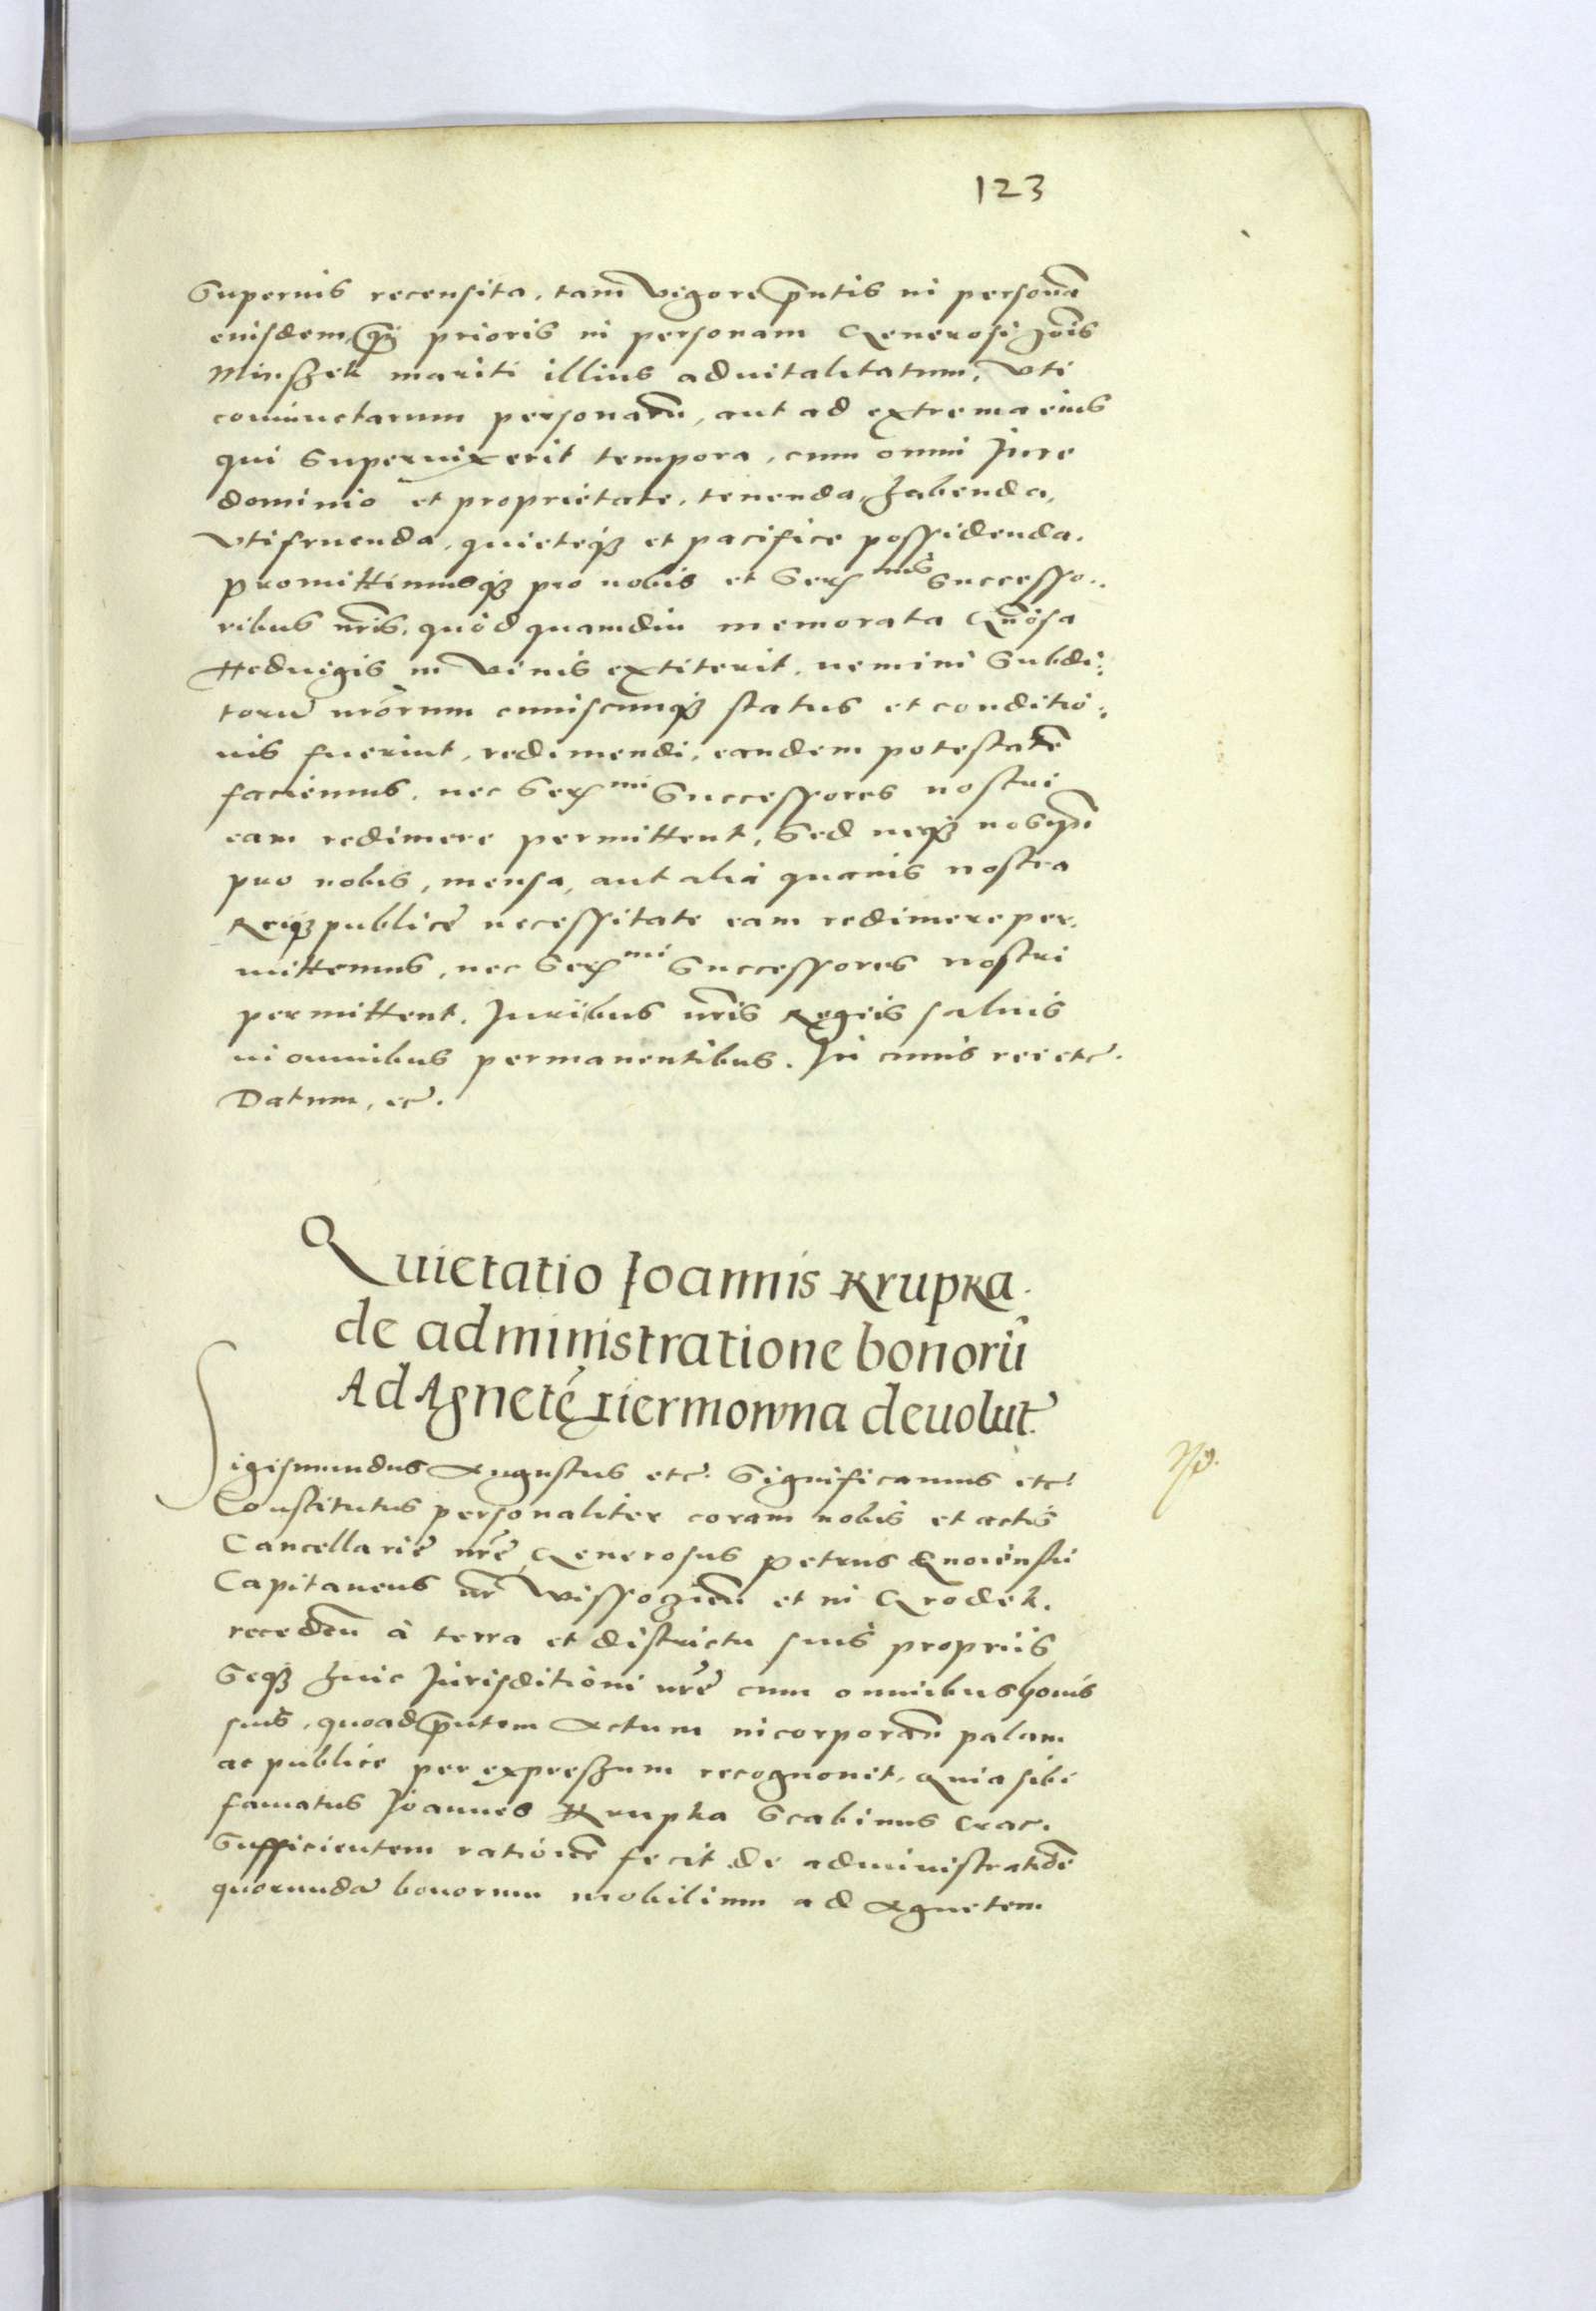 123
Supernis recensita, tam vigore p̃ntis in personã
eiusdem, q̃ȝ prioris in personam Generosi Jois
Minszek mariti illius aduitalitatum, vti
coniunctarum personarũ, aut ad extrema eius
qui superuixerit tempora, cum omni Jure
dominio et proprietate, tenenda, habenda,
vtifruenda, quieteqꝫ et pacifice possidenda.
Promittimusqꝫ pro nobis et Ser^mis Successo..
ribus nr̃is, quòd quamdiu memorata Gnõsa
Heduigis in viuis extiterit, nemini Subdi:
torũ nrõrum cuiuscunqꝫ status et conditio:
nis fuerint, redimendi, eandem potestatẽ
faciemus, nec Ser^mi Successores nostri
eam redimere permittent, Sed neqꝫ nos ip̃i
pro nobis, mensa, aut alia quauis nostra
Reiqꝫ publicę necessitate eam redimere per.
mittemus, nec Ser^mi Successores nostri
permittent. Juribus nr̃is Regiis saluis
in omnibus permanentibus. In cuius rei etc.
Datum, etc.
Quietatio Joannis Krupka
de administratione bonorũ
Ad Agnetẽ devolut.
Sigismundus Augustus etc. Significamus etc.
Constitutus personaliter coram nobis et actis
Cancellarię nr̃ę Generosus Petrus
Capitaneus nr̃ et in Grodek.
recedeñ à terra et districtu suis propriis
Seqꝫ huic Jurisditioni nr̃ę cum omnibus bonis
suis, quoad p̃ntem Actum incorporañ palam
ac publice per expreszum recognouit, Quia sibi
famatus Joannes Krupka Scabinus Crac.
Sufficientem rationẽ fecit de administratiõe
quorundã bonorum mobilium ad Agnetem